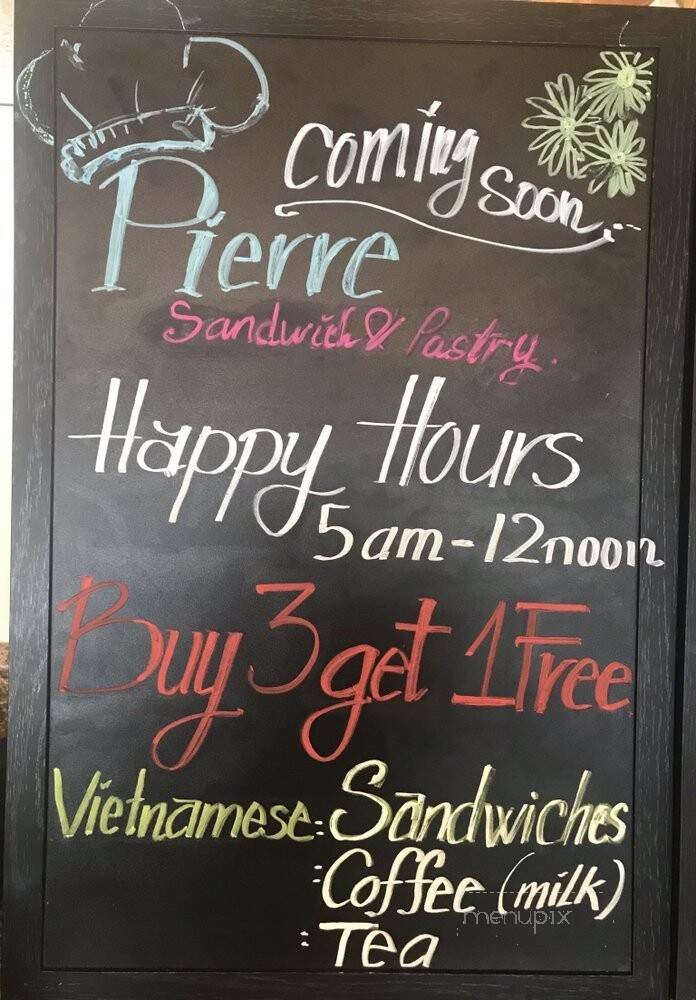 Coming Soon...
Pierre
Sandwich & Pastry.
Happy Hours
5am-12noon
Buy 3 get 1 Free
Vietnamese: Sandwiches
: Coffee (milk)
: Tea
menupix